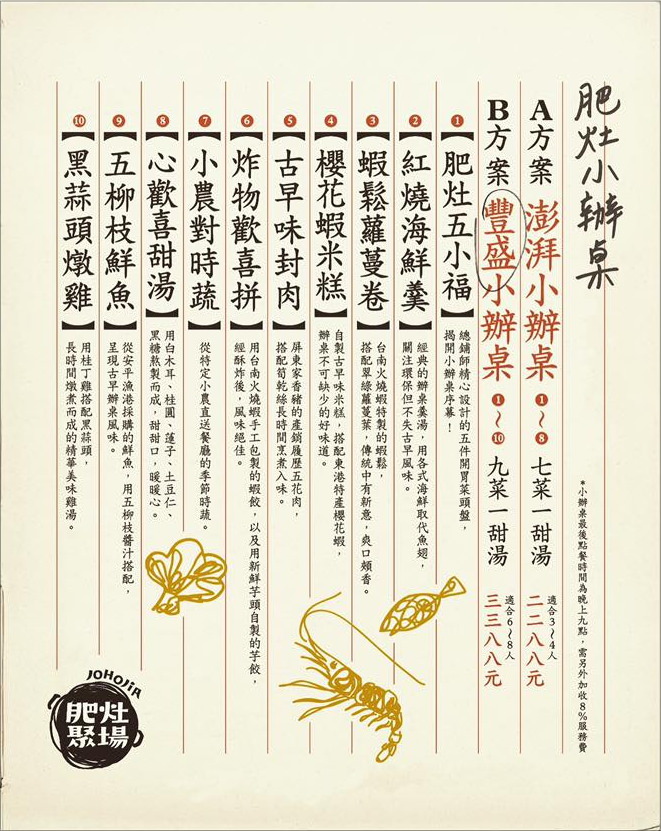 肥灶小辦桌
*小辦桌最後點餐時間為晚上九點,需另外加收8%服務費
A方案 澎湃小辦桌 1~8 七菜一甜湯 適合3~4人 二二八八元
B方案 豐盛小辦桌 1~10 九菜一甜湯 適合6~8人 三三八八元
1【肥灶五小福】
總鋪師精心設計的五件開胃菜頭盤,
揭開小辦桌序幕!
2【紅燒海鮮羹】
經典的辦桌羹湯,用各式海鮮取代魚翅,
關注環保但不失古早風味。
3【蝦鬆蘿蔓卷】
台南火燒蝦特製的蝦鬆,
搭配翠綠蘿蔓葉,傳統中有新意,爽口頰香。
4【櫻花蝦米糕】
自製古早味米糕,搭配東港特產櫻花蝦,
辦桌不可缺少的好味道。
5【古早味封肉】
屏東家香豬的產銷履歷五花肉,
搭配筍乾絲長時間烹煮入味。
6【炸物歡喜拼】
用台南火燒蝦手工包製的蝦餃,以及用新鮮芋頭自製的芋餃,
經酥炸後,風味絕佳。
7【小農對時蔬】
從特定小農直送餐廳的季節時蔬。
8【心歡喜甜湯】
用白木耳、桂圓、蓮子、土豆仁、
黑糖熬製而成,甜甜口,暖暖心。
9【五柳枝鮮魚】
從安平漁港採購的鮮魚,用五柳枝醬汁搭配,
呈現古早辦桌風味。
10【黑蒜頭燉雞】
用桂丁雞搭配黑蒜頭,
長時間燉煮而成的精華美味雞湯。
JOHOJIA
肥灶
聚場